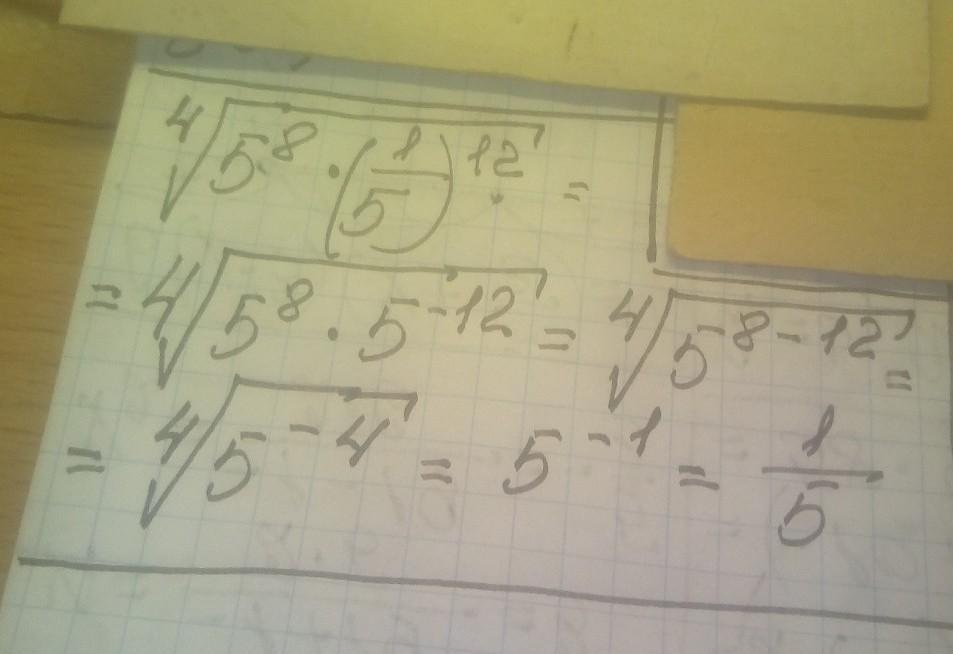 ⁴√(5⁸ · (1/5)¹²) =
= ⁴√(5⁸ · 5⁻¹²) = ⁴√(5⁸⁻¹²) =
= ⁴√(5⁻⁴) = 5⁻¹ = 1/5